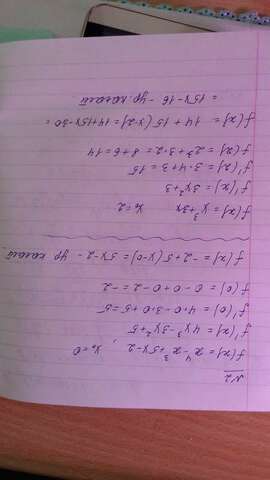 N2
f(x) = x⁴ - x³ + 5x - 2 , x₀ = 0
f'(x) = 4x³ - 3x² + 5
f'(0) = 4·0 - 3·0 + 5 = 5
f(0) = 0 - 0 + 0 - 2 = -2
f(x) = -2 + 5(x-0) = 5x - 2 - ур касат.
f(x) = x³ + 3x x₀ = 2
f'(x) = 3x² + 3
f'(2) = 3·4 + 3 = 15
f(2) = 2³ + 3·2 = 8 + 6 = 14
f(x) = 14 + 15(x-2) = 14 + 15x - 30 =
= 15x - 16 - ур. касат.